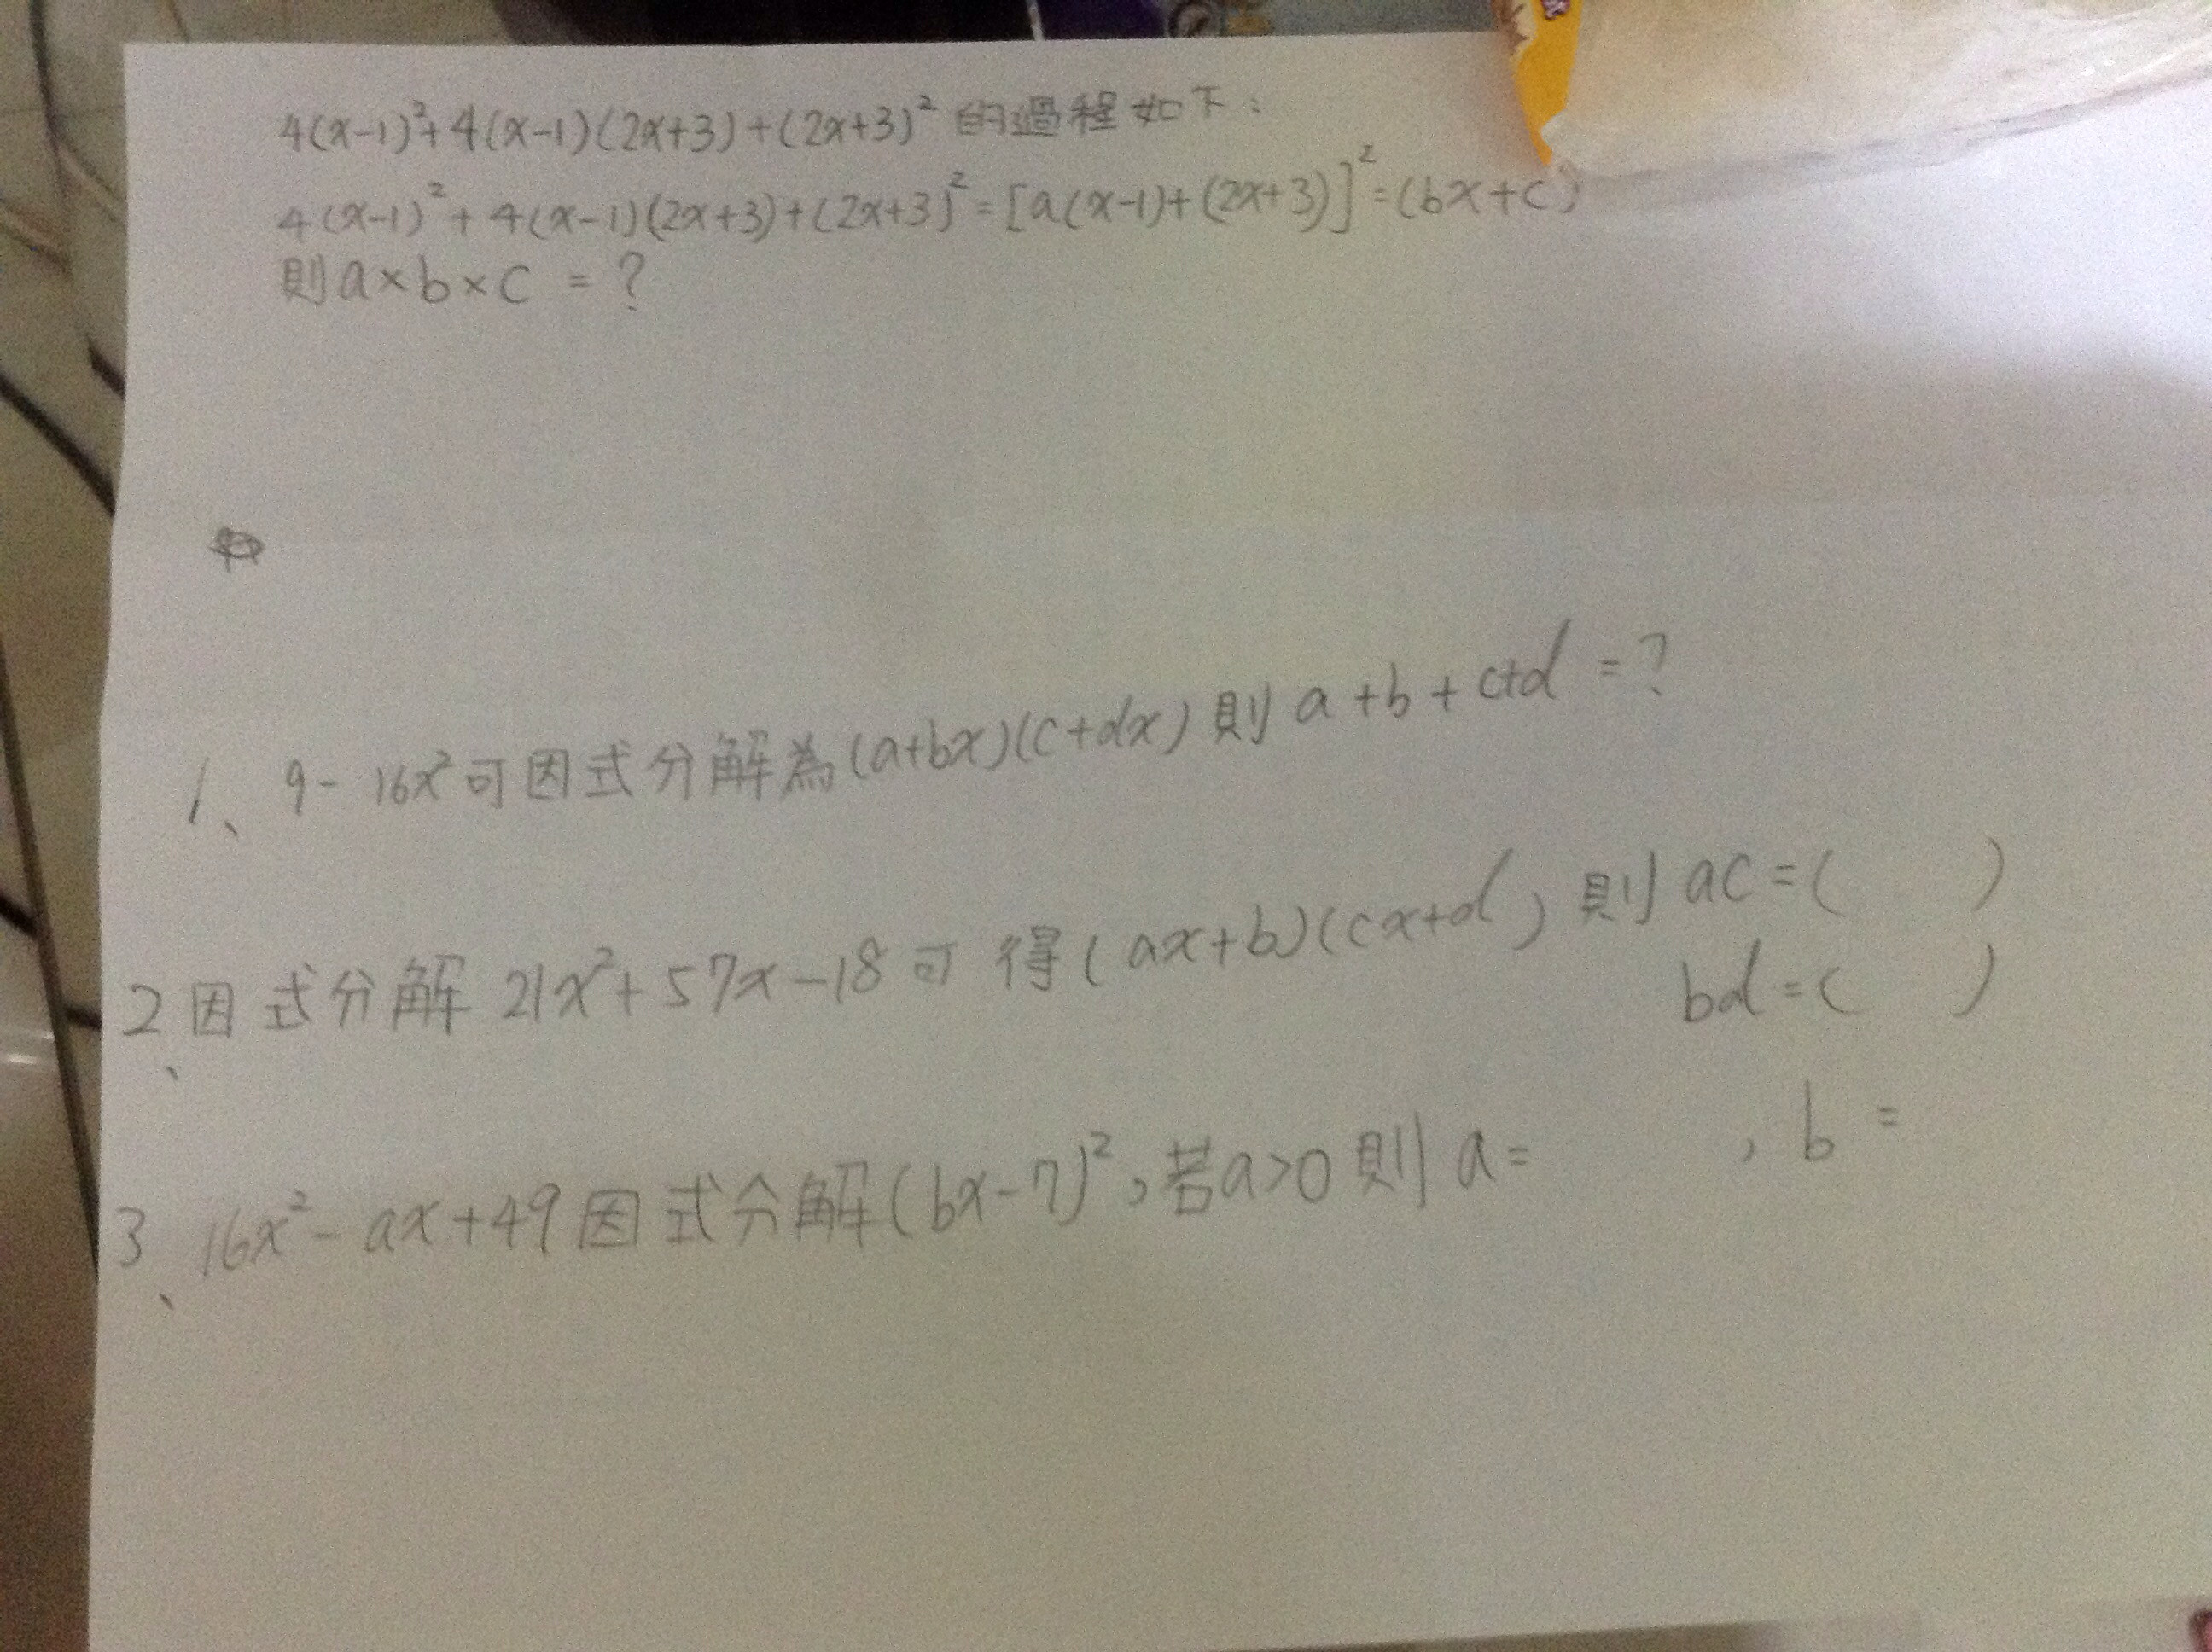 4(x-1)²+4(x-1)(2x+3)+(2x+3)² 的過程如下：
4(x-1)²+4(x-1)(2x+3)+(2x+3)²=[a(x-1)+(2x+3)]²=(bx+c)
則a×b×c = ?
1、9-16x²可因式分解為(a+bx)(c+dx)則a+b+c+d=?
2、因式分解 21x²+57x-18可得(ax+b)(cx+d)則ac=( )
bd=( )
3、16x²-ax+49因式分解(bx-7)²,若a>0則a= , b =